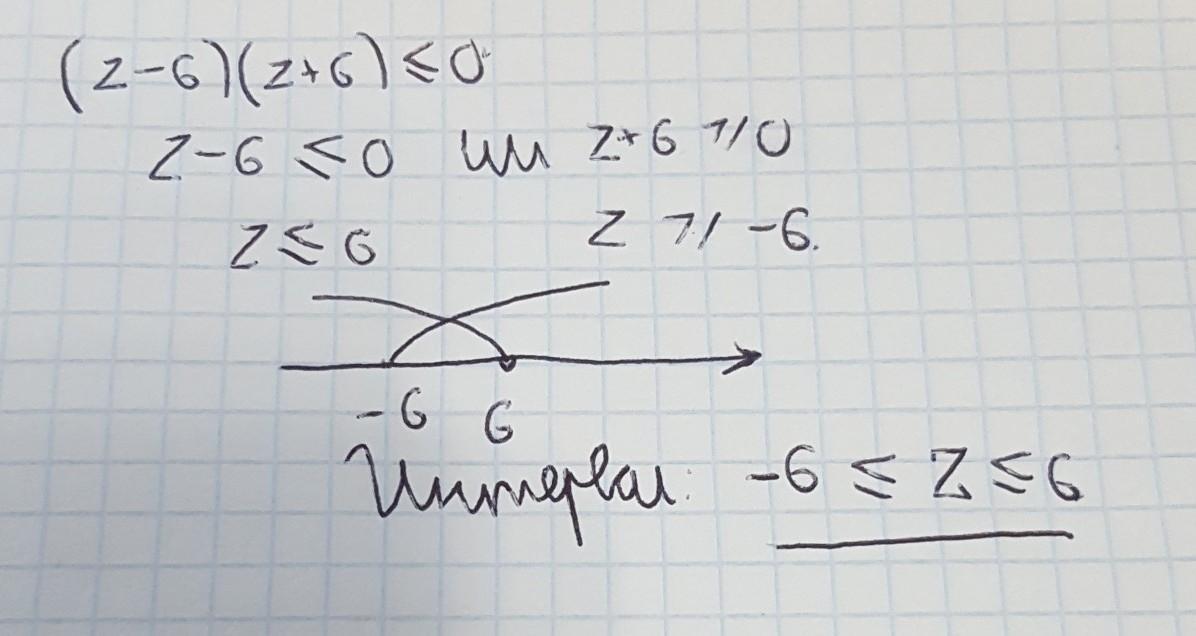 (z-6)(z+6) ≤ 0
z-6 ≤ 0 или z+6 ⩾ 0
z ≤ 6 z ⩾ -6.
-6 6
Интервал: -6 ≤ z ≤ 6